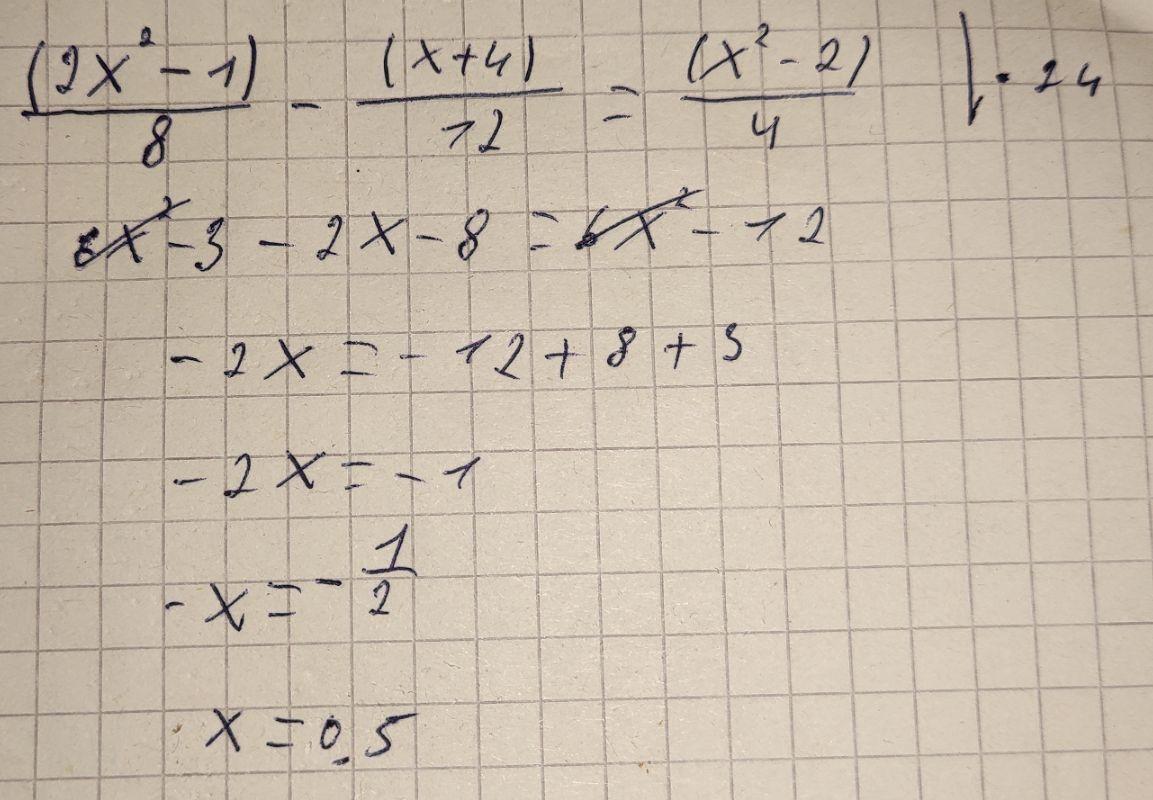 (2x² - 1)/8 - (x+4)/12 = (x² - 2)/4 | · 24
6x² - 3 - 2x - 8 = 6x² - 12
- 2x = - 12 + 8 + 3
- 2x = - 1
- x = - 1/2
x = 0.5